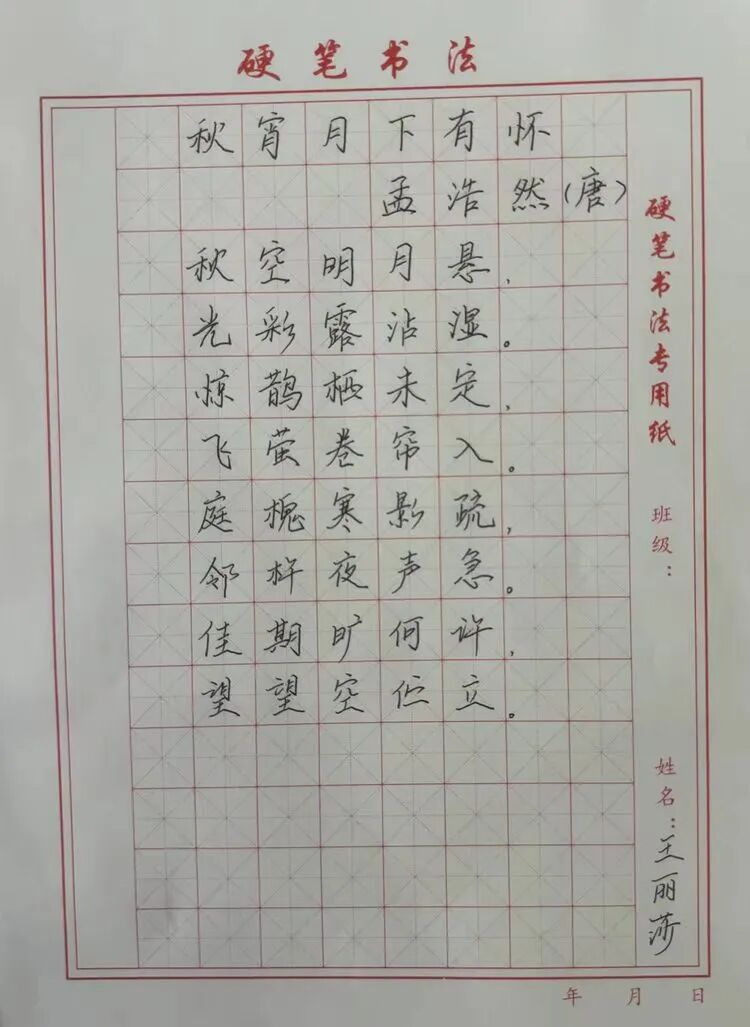 硬笔书法
秋宵月下有怀
孟浩然(唐)
秋空明月悬,
光彩露沾湿。
惊鹊栖未定,
飞萤卷帘入。
庭槐寒影疏,
邻杵夜声急。
佳期旷何许,
望望空伫立。
硬笔书法专用纸
班级:
姓名:王丽莎
年月日